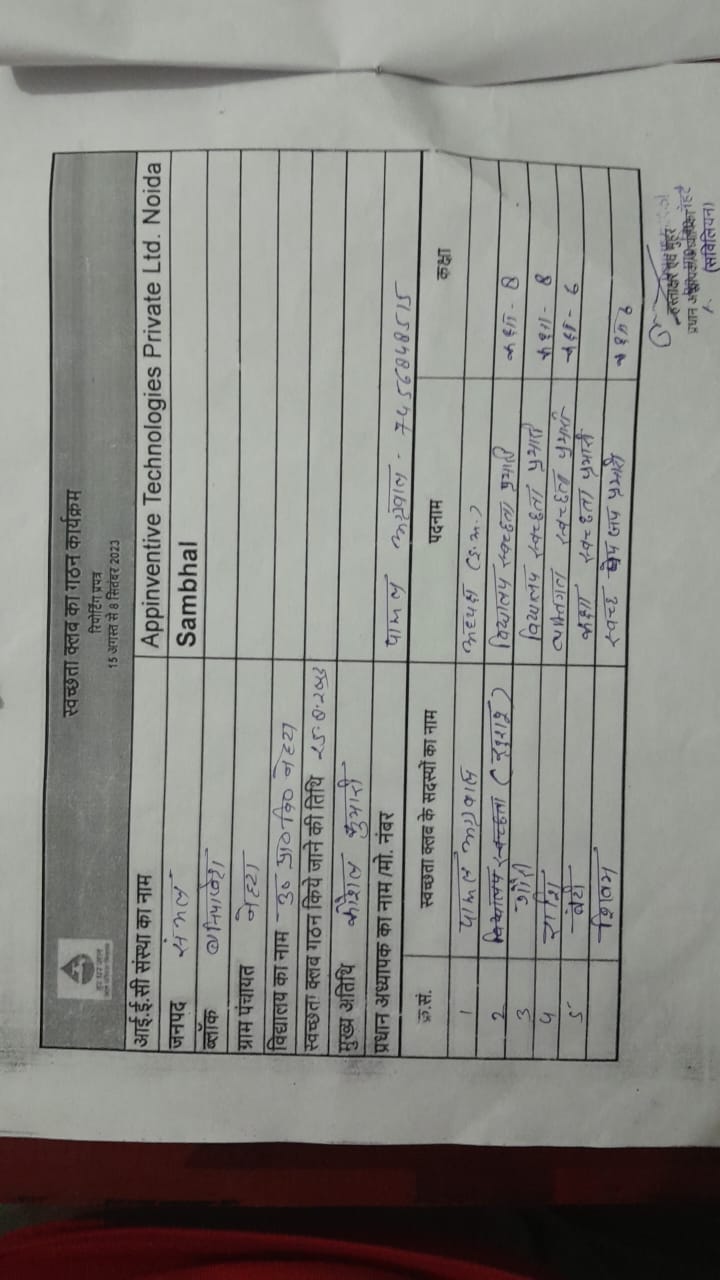 स्वच्छता क्लब का गठन कार्यक्रम
रिपोर्टिंग प्रपत्र
15 अगस्त से 8 सितंबर 2023
हर घर जल
आई.ई.सी संस्था का नाम Appinventive Technologies Private Ltd. Noida
जनपद संभल Sambhal
ब्लॉक
ग्राम पंचायत नेहटा
विद्यालय का नाम उ० प्रा० वि० नेहटा
स्वच्छता क्लब गठन किये जाने की तिथि २५.८.२०२३
मुख्य अतिथि कौशल कुमारी
प्रधान अध्यापक का नाम/मो. नंबर पायल अग्रवाल - 7456848515
क्र.सं. स्वच्छता क्लब के सदस्यों का नाम पदनाम कक्षा
1 पायल अग्रवाल अध्यक्ष (इ.अ.)
2 विद्यालय स्वच्छता विद्यालय स्वच्छता प्रभारी कक्षा - 8
3 गौरी विद्यालय स्वच्छता प्रभारी कक्षा - 8
4 राशि व्यक्तिगत स्वच्छता प्रभारी कक्षा - 6
5 कक्षा स्वच्छता प्रभारी
शिवम स्वच्छ पेय जल प्रभारी कक्षा 6
हस्ताक्षर एवं मुहर
प्रधान
(संविलियन)